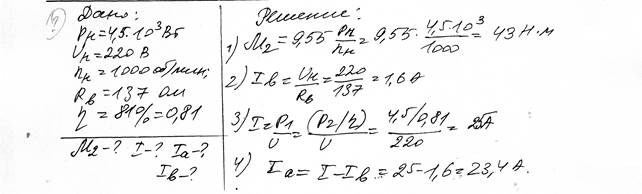 Дано:
Pн=4,5·10³Вт
Uн=220 В
nн=1000 об/мин;
Rв=137 Ом
η=81%=0,81
M₂-? I-? Iа-?
Iв-?
Решение:
1) M₂=9,55 Pн/nн=9,55·4,5·10³/1000=43 Н·м
2) Iв=Uн/Rв=220/137=1,6 А
3) I=P1/U=(P2/η)/U=4,5/0,81/220=25А
4) Iа=I-Iв=25-1,6=23,4 А.